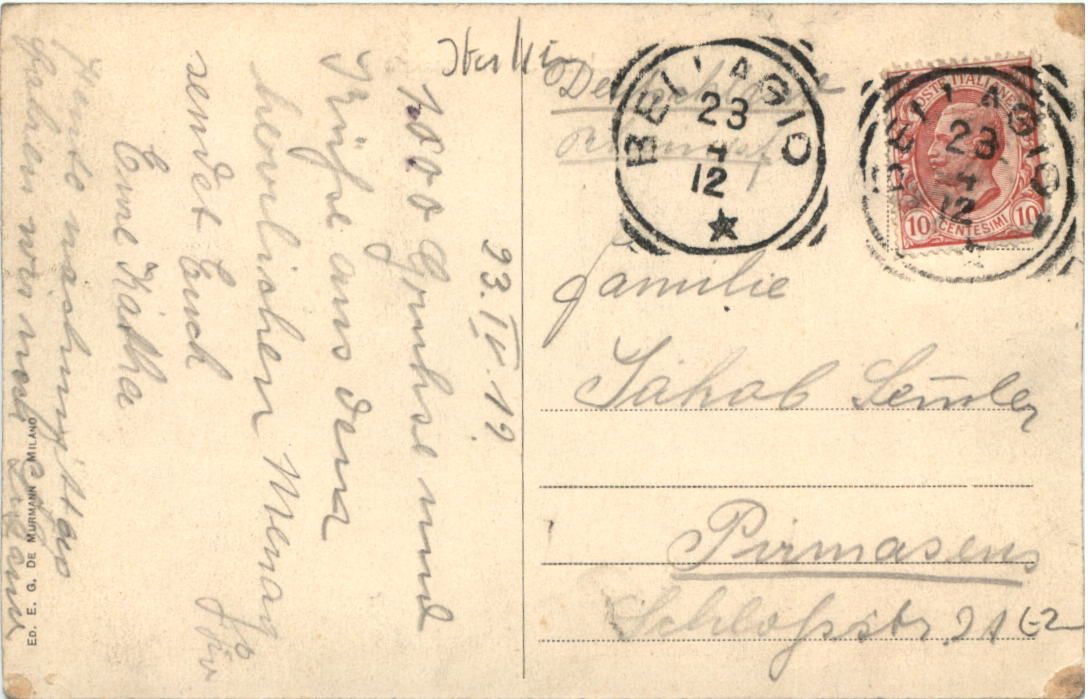 23.IV.12.
1000 Grühse und
Küsse aus dem
herrlichen Menag
gio
sendet Euch
Eure Kätha
Heute nachmittag
fahren wir nach Lugano
ED. E. G. DE MURMANN MILANO
Deutschland
BELLAGIO
23
4
12
POSTE ITALIANE
10 CENTESIMI 10
BELLAGIO
23
4
12
Familie
Jakob Semler
Pirmasens
Schloßstr. 21